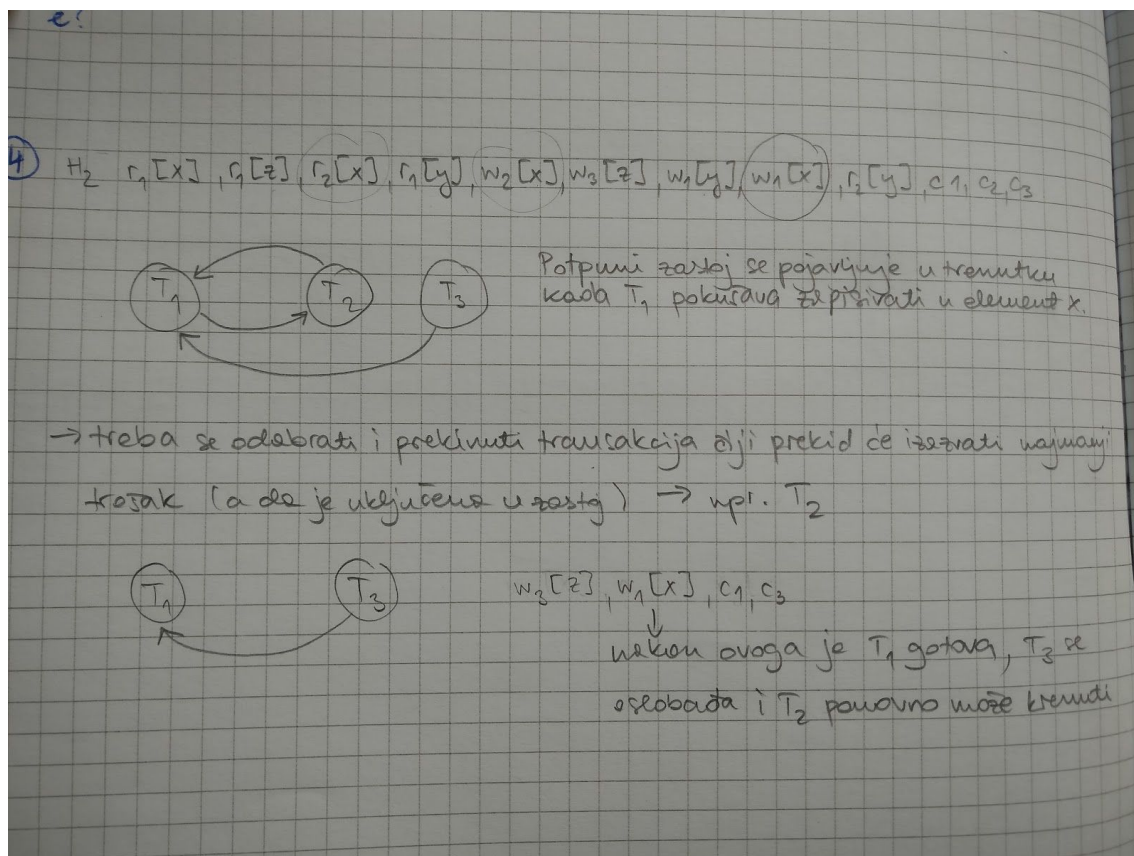 e!
4 H₂ r₁[x], r₁[z], r₂[x], r₁[y], w₂[x], w₃[z], w₁[y], w₁[x], r₂[y], c1, c₂, c₃
T₁ T₂ T₃
Potpuni zastoj se pojavljuje u trenutku
kada T₁ pokušava zapisivati u element x.
→ treba se odabrati i prekinuti transakcija čiji prekid će izazvati najmanji
trošak (a da je uključena u zastoj) → npr. T₂
T₁ T₃
w₃[z], w₁[x], c1, c₃
nakon ovoga je T₁ gotova, T₃ se
oslobađa i T₂ ponovno može krenuti